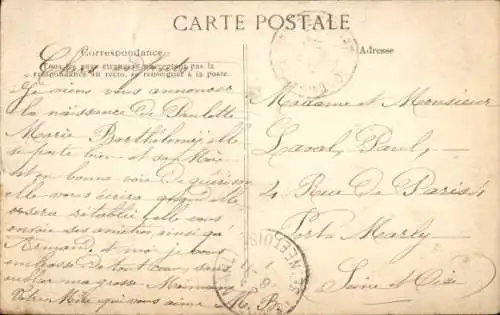 CARTE POSTALE
Correspondance
Tous les pays étrangers n'acceptent pas la
correspondance au recto, se renseigner à la poste
Adresse
Je viens vous annoncer
la naissance de Paulette
Marie Bartholomij elle
se porte bien et sa Mère
est en bonne voie de guérison
elle vous écrira quand elle
sera rétablie elle vous
envoie ses amitiés ainsi qu'
Armand et moi je vous
embrasse de tout cœur sans
oublier ma grosse Maman
Votre Mike qui vous aime M. B.
Madame et Monsieur
Laval Paul,
4 Rue de Paris 4
Port Marly
Seine et Oise